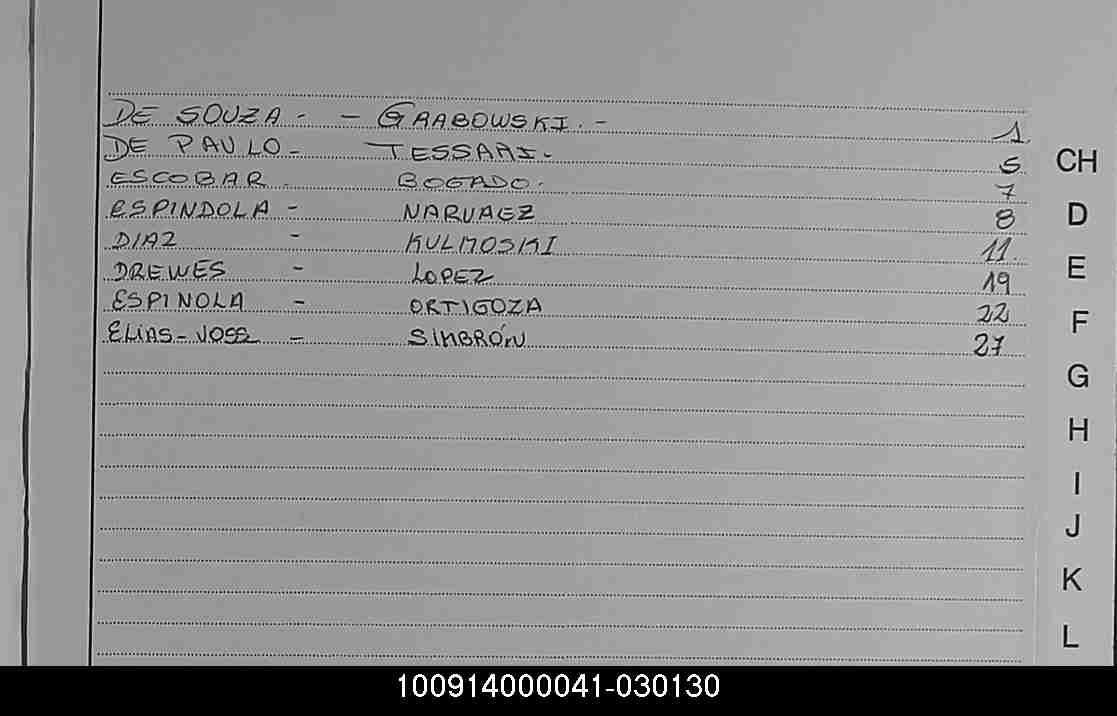 DE SOUZA. - GRABOWSKI. - 1
DE PAULO - TESSARI. 5
ESCOBAR. BOGADO. 7
ESPINDOLA - NARVAEZ 8
DIAZ - KULMOSKI 11.
DREWES - LOPEZ 19
ESPINOLA - ORTIGOZA 22
ELIAS - VOSS - SIMBRÓN 27
CH
D
E
F
G
H
I
J
K
L
100914000041-030130